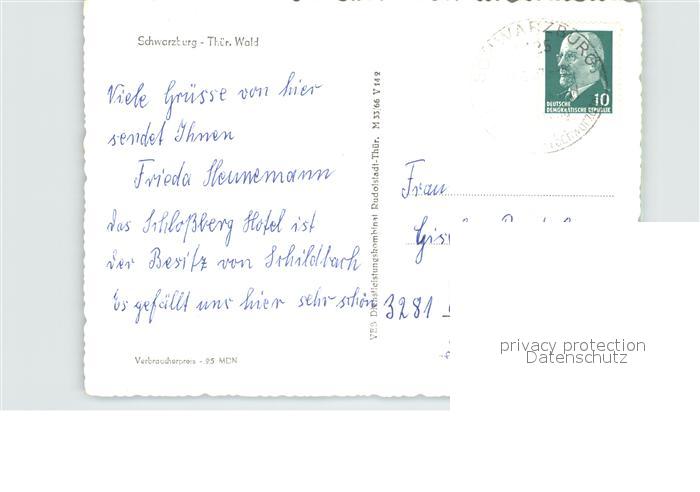 Schwarzburg - Thür. Wald
Viele Grüsse von hier
sendet Ihnen
Frieda Hennemann
das Schloßberg Hotel ist
der Besitz von Schildbach
Es gefällt uns hier sehr schön
Verbraucherpreis -.25 MDN
VEB Dienstleistungskombinat Rudolstadt-Thür. M 33/66 V 142
SCHWARZBURG
DEUTSCHE
DEMOKRATISCHE REPUBLIK
10
Frau
3281
privacy protection
Datenschutz